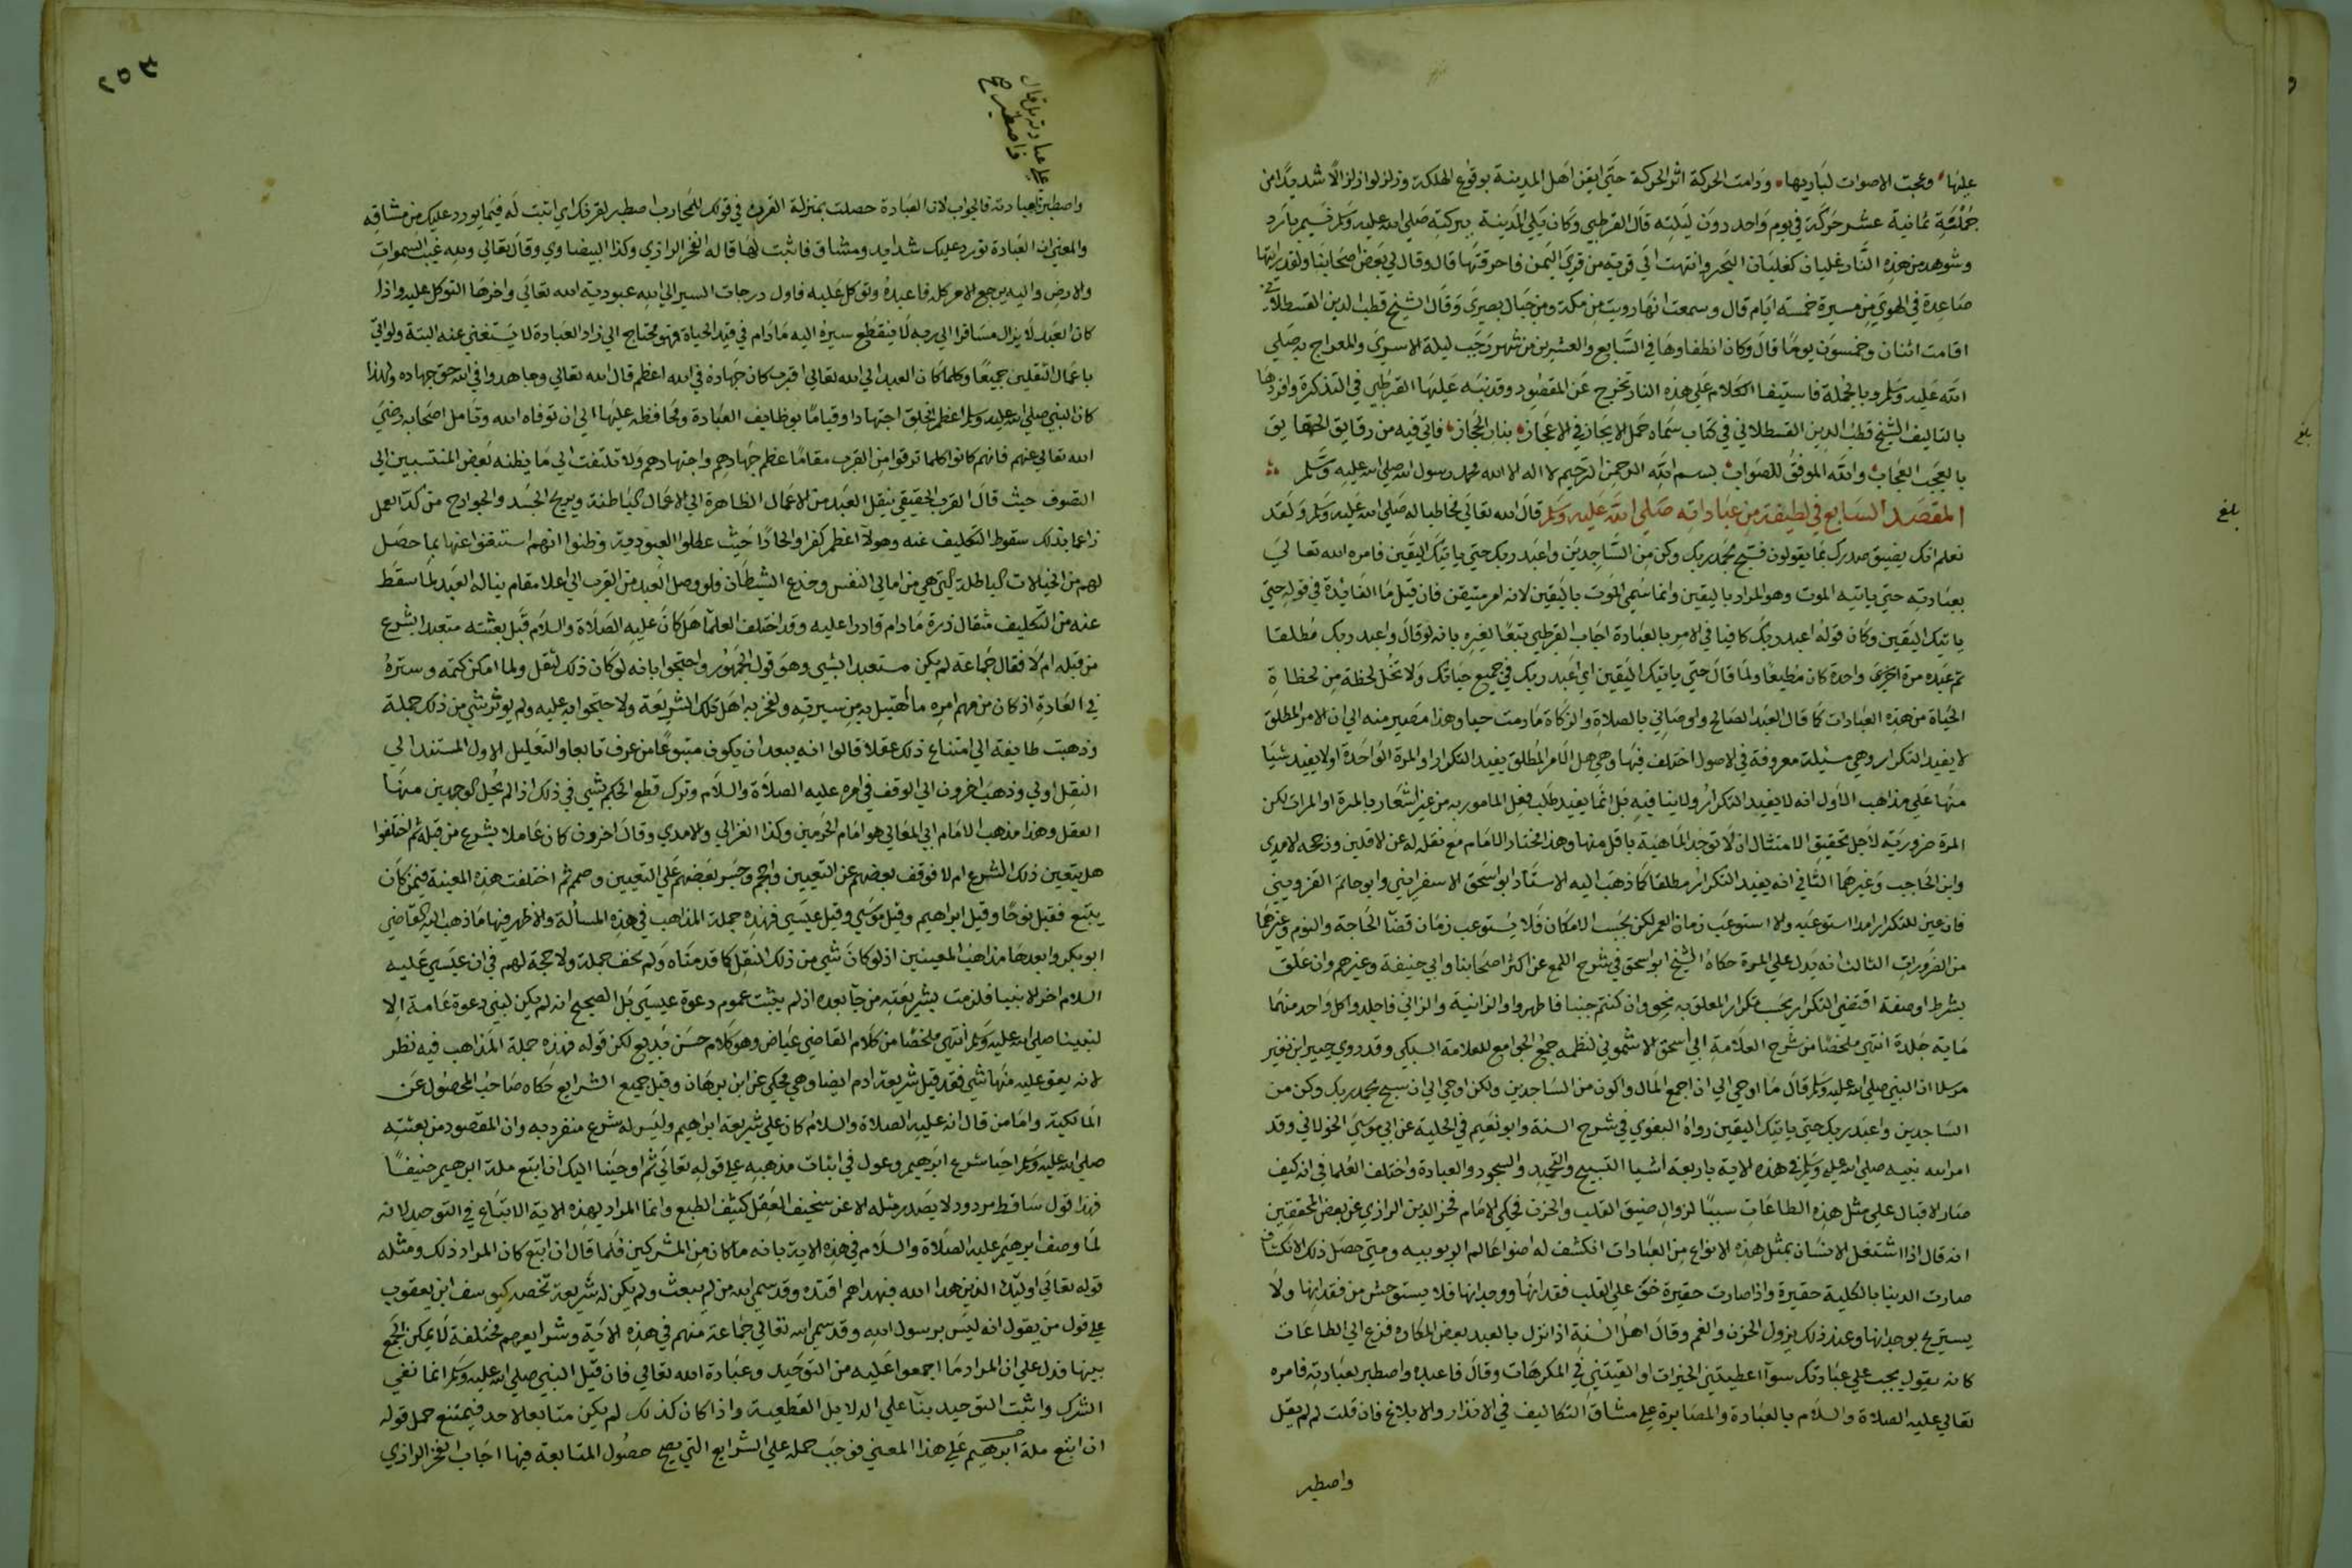 عليها وعجت الاصوات لباريها ودامت الحركة اثر الحركة حتى ايقن اهل المدينة بوقوع الهلكة وزلزلوا زلزالا شديدا من
جملته ثمانية عشر حركة في يوم واحد دون ليلته قال القرطبي وكان يلي المدينة ببركته صلى الله عليه وسلم نسيم بارد
وشوهد من هذه النار غليان كغليان البحر وانتهت الى قرية من قرى اليمن فاحرقتها قال وقال لي بعض اصحابنا ولقد رايتها
صاعدة في الهوى من مسيرة خمسة ايام قال وسمعت انها رويت من مكة ومن جبال بصرى وقال الشيخ قطب الدين القسطلاني
اقامت اثنان وخمسون يوما قال وكان انطفاوها في السابع والعشرين من شهر رجب ليلة الاسرى والمعراج به صلى
الله عليه وسلم وبالجملة فاستيفا الكلام على هذه النار تخرج عن المقصود وقد نبه عليها القرطبي في التذكرة وافردها
بالتاليف الشيخ قطب الدين القسطلاني في كتاب سماه جمل الايجاز في الاعجاز بنار الحجاز فاتى فيه من رقايق الحقايق
بالعجب العجاب والله الموفق للصواب بسم الله الرحمن الرحيم لا اله الا الله محمد رسول الله صلى الله عليه وسلم
المقصد السابع في لطيفة من عباداته صلى الله عليه وسلم قال الله تعالى مخاطبا له صلى الله عليه وسلم ولقد
بلغ
نعلم انك يضيق صدرك بما يقولون فسبح بحمد ربك وكن من الساجدين واعبد ربك حتى ياتيك اليقين فامره الله تعالى
بعبادته حتى ياتيه الموت وهو المراد باليقين وانما سمي الموت باليقين لانه امر متيقن فان قيل ما الفائدة في قوله حتى
ياتيك اليقين وكان قوله اعبد ربك كافيا في الامر بالعبادة اجاب القرطبي تبعا لغيره بانه لو قال واعبد ربك مطلقا
ثم عبده مرة اخرى واحدة كان مطيعا ولما قال حتى ياتيك اليقين اي اعبد ربك في جميع حياتك ولا تخل لحظة من لحظات
الحياة من هذه العبادات كما قال العبد الصالح واوصاني بالصلاة والزكاة ما دمت حيا وهذا مصير منه الى ان الامر المطلق
لا يفيد التكرار وهي مسيلة معروفة في الاصول اختلف فيها وهي هل الامر المطلق يفيد التكرار او المرة الواحدة او لا يفيد شيا
منها على مذاهب الاول انه لا يفيد التكرار ولا ينافيه بل انما يفيد طلب فعل المامور به من غير اشعار بالمرة او المرات لكن
المرة ضرورية لاجل تحقيق الامتثال اذ لا توجد الماهية باقل منها وهذا مختار الامام مع نقله له عن الاقلين ورجحه الامدي
وابن الحاجب وغيرهما الثاني انه يفيد التكرار مطلقا كما ذهب اليه الاستاد ابو اسحق الاسفرايني وابو حاتم القزويني
فان عين للتكرار امدا استوعبه والا استوعب زمان العمر لكن بحسب الامكان فلا يستوعب زمان قضا الحاجة والنوم وغيرهما
من الضرورات الثالث انه يدل على المرة حكاه الشيخ ابو اسحق في شرح اللمع عن اكثر اصحابنا وابي حنيفة وغيرهم وان علق
بشرط او صفة اقتضى التكرار بحسب تكرار المعلق به نحو وان كنتم جنبا فاطهروا والزانية والزاني فاجلدوا كل واحد منهما
ماية جلدة انتهى ملخصا من شرح العلامة ابي اسحق الاشموني لنظمه جمع الجوامع للعلامة السبكي وقد روى جبير ابن نفير
مرسلا ان النبي صلى الله عليه وسلم قال ما اوحي الي ان اجمع المال واكون من الساجدين ولكن اوحي الي ان سبح بحمد ربك وكن من
الساجدين واعبد ربك حتى ياتيك اليقين رواه البغوي في شرح السنة وابو نعيم في الحلية عن ابي موسى الخولاني وقد
امر الله نبيه صلى الله عليه وسلم في هذه الاية باربعة اشيا التسبيح والتحميد والسجود والعبادة واختلف العلما في انه كيف
صار الاقبال على مثل هذه الطاعات سببا لزوال ضيق القلب والحزن فحكى الامام فخر الدين الرازي عن بعض المحققين
انه قال اذا اشتغل الانسان بمثل هذه الانواع من العبادات انكشف له اضوا عالم الربوبيه ومتى حصل ذلك الانكشاف
صارت الدنيا بالكلية حقيرة واذا صارت حقيرة خف على القلب فقدانها ووجدانها فلا يستوحش من فقدانها ولا
يستريح بوجدانها وعند ذلك يزول الحزن والغم وقال اهل السنة اذا نزل بالعبد بعض المكاره فزع الى الطاعات
كانه يقول يجب علي عبادتك سوآ اعطيتني الخيرات او القيتني في المكرهات وقال فاعبده واصطبر لعبادته فامره
تعالى عليه الصلاة والسلام بالعبادة والمصابرة على مشاق التكاليف في الانذار والابلاغ فان قلت لم لم يقل
واصطبر
٢٥٣
على عبادته بل قال
واصطبر صح
واصطبر لعبادته فالجواب لان العبادة حصلت بمنزلة القرن في قولك للمحارب اصطبر لقرنك اي اثبت له فيما يورد عليك من مشاقه
والمعنى ان العبادة تورد عليك شدايد ومشاق فاثبت لها قاله الفخر الرازي وكذا البيضاوي وقال تعالى ولله غيب السموات
والارض واليه يرجع الامر كله فاعبده وتوكل عليه فاول درجات السير الى الله عبودية الله تعالى واخرها التوكل عليه واذا
كان العبد لا يزال مسافرا الى ربه لا ينقطع سيره اليه ما دام في قيد الحياة فهو محتاج الى زاد العبادة لا يستغني عنه البتة ولو اتى
باعمال الثقلين جميعا وكلما كان العبد الى الله تعالى اقرب كان جهاده في الله اعظم قال الله تعالى وجاهدوا في الله حق جهاده ولهذا
كان النبي صلى الله عليه وسلم اعظم الخلق اجتهادا وقياما بوظايف العبادة ومحافظة عليها الى ان توفاه الله وتامل اصحابه رضي
الله تعالى عنهم فانهم كانوا كلما ترقوا من القرب مقاما عظم جهادهم واجتهادهم ولا تلتفت الى ما يظنه بعض المنتسبين الى
التصوف حيث قال القرب الحقيقي ينقل العبد من الاعمال الظاهرة الى الاعمال الباطنة ويريح الجسد والجوارح من كد العمل
زاعما بذلك سقوط التكليف عنه وهولآ اعظم كفرا والحادا حيث عطلوا العبودية وظنوا انهم استغنوا عنها بما حصل
لهم من الخيالات الباطلة التي هي من اماني النفس وخدع الشيطان فلو وصل العبد من القرب الى اعلا مقام يناله العبد لما سقط
عنه من التكليف مثقال ذرة ما دام قادرا عليه وقد اختلف العلمآ هل كان عليه الصلاة والسلام قبل بعثته متعبدا بشرع
من قبله ام لا فقال جماعة لم يكن متعبدا بشي وهو قول الجمهور واحتجوا بانه لو كان ذلك لنقل ولما امكن كتمه وستره
في العادة اذ كان من مهم امره ما اهتبل به من سيرته ولفخر به اهل تلك الشريعة ولاحتجوا به عليه ولم يوثر شي من ذلك جملة
وذهبت طايفة الى امتناع ذلك عقلا قالوا انه يبعد ان يكون متبوعا من عرف تابعا والتعليل الاول المستند الى
النقل اولى وذهب اخرون الى الوقف في امره عليه الصلاة والسلام وترك قطع الحكم بشي في ذلك اذ لم يحل الوجهين منها
العقل وهذا مذهب الامام ابي المعالي هو امام الحرمين وكذا الغزالي والامدي وقال اخرون كان عاملا بشرع من قبله ثم اختلفوا
هل يتعين ذلك الشرع ام لا فوقف بعضهم عن التعيين واحجم وجسر بعضهم على التعيين وصمم ثم اختلفت هذه المعينة فيمن كان
يتبع فقيل نوحا وقيل ابراهيم وقيل موسى وقيل عيسى فهذه جملة المذاهب في هذه المسألة والاظهر فيها ما ذهب اليه القاضي
ابو بكر وابعدها مذاهب المعينين اذ لو كان شي من ذلك لنقل كما قدمناه ولم يخف جملة ولا حجة لهم في ان عيسى عليه
السلام اخر الانبيا فلزمت شريعته من جآ بعده اذ لم يثبت عموم دعوة عيسى بل الصحيح انه لم يكن لنبي دعوة عامة الا
لنبينا صلى الله عليه وسلم انتهى ملخصا من كلام القاضي عياض وهو كلام حسن بديع لكن قوله فهذه جملة المذاهب فيه نظر
لانه بقي عليه منها شي فقد قيل شريعة ادم ايضا وهي محكي عن ابن برهان وقيل جميع الشرايع حكاه صاحب المحصول عن
المالكية واما من قال انه عليه الصلاة والسلام كان على شريعة ابراهيم وليس له شرع منفرد به وان المقصود من بعثته
صلى الله عليه وسلم احيا شرع ابرهيم وعول في اثبات مذهبه على قوله تعالى ثم اوحينا اليك ان اتبع ملة ابرهيم حنيفا
فهذا قول ساقط مردود لا يصدر مثله الا عن سخيف العقل كثيف الطبع وانما المراد بهذه الاية الاتباع في التوحيد لانه
لما وصف ابرهيم عليه الصلاة والسلام في هذه الاية بانه ما كان من المشركين فلما قال ان اتبع كان المراد ذلك ومثله
قوله تعالى اوليك الذين هدا الله فبهداهم اقتده وقد سمى الله من لم يبعث ولم يكن له شريعة تخصه كيوسف ابن يعقوب
على قول من يقول انه ليس برسول الله وقد سمى الله تعالى جماعة منهم في هذه الاية وشرايعهم مختلفة لا يمكن الجمع
بينها فدل على ان المراد ما اجمعوا عليه من التوحيد وعبادة الله تعالى فان قيل النبي صلى الله عليه وسلم انما نفى
الشرك واثبت التوحيد بنآ على الدلايل القطعية واذا كان كذلك لم يكن متابعا لاحد فيمتنع حمل قوله
ان اتبع ملة ابرهيم على هذا المعنى فوجب حمله على الشرايع التي يصح حصول المتابعة فيها اجاب الفخر الرازي